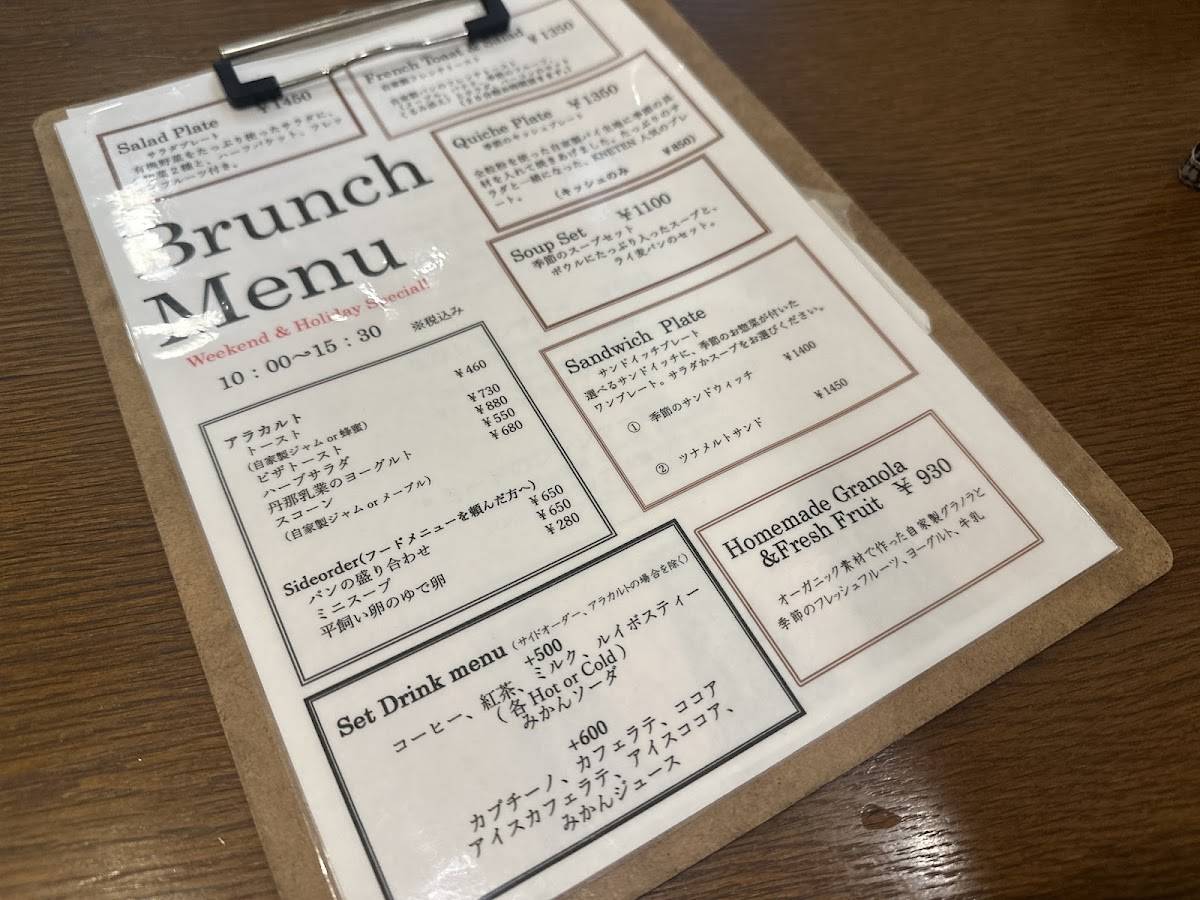 Salad Plate ¥1450
サラダプレート
有機野菜をたっぷり使ったサラダに、
惣菜２種と、ハーフバケット、フレッ
フルーツ付き。
French Toast & Salad ¥1350
自家製フレンチトースト
Quiche Plate ¥1350
季節のキッシュプレート
全粒粉を使った自家製パイ生地に季節の具
材を入れて焼きあげました。たっぷりのサ
ラダと一緒になった、KNETEN 人気のプレ
ート。
(キッシュのみ ¥850)
Brunch
Menu
Weekend & Holiday Special!
10：00〜15：30 ※税込み
Soup Set ¥1100
季節のスープセット
ボウルにたっぷり入ったスープと、
ライ麦パンのセット。
Sandwich Plate
サンドイッチプレート
選べるサンドイッチに、季節のお惣菜が付いた
ワンプレート。サラダかスープをお選びください。
① 季節のサンドウィッチ ¥1400
② ツナメルトサンド ¥1450
アラカルト
トースト ¥460
(自家製ジャム or 蜂蜜)
ピザトースト ¥730
ハーブサラダ ¥880
丹那乳業のヨーグルト ¥550
スコーン ¥680
(自家製ジャム or メープル)
Sideorder(フードメニューを頼んだ方へ)
パンの盛り合わせ ¥650
ミニスープ ¥650
平飼い卵のゆで卵 ¥280
Homemade Granola
&Fresh Fruit ¥930
オーガニック素材で作った自家製グラノラと
季節のフレッシュフルーツ、ヨーグルト、牛乳
Set Drink menu (サイドオーダー、アラカルトの場合を除く)
+500
コーヒー、紅茶、ミルク、ルイボスティー
(各 Hot or Cold)
みかんソーダ
+600
カプチーノ、カフェラテ、ココア
アイスカフェラテ、アイスココア、
みかんジュース